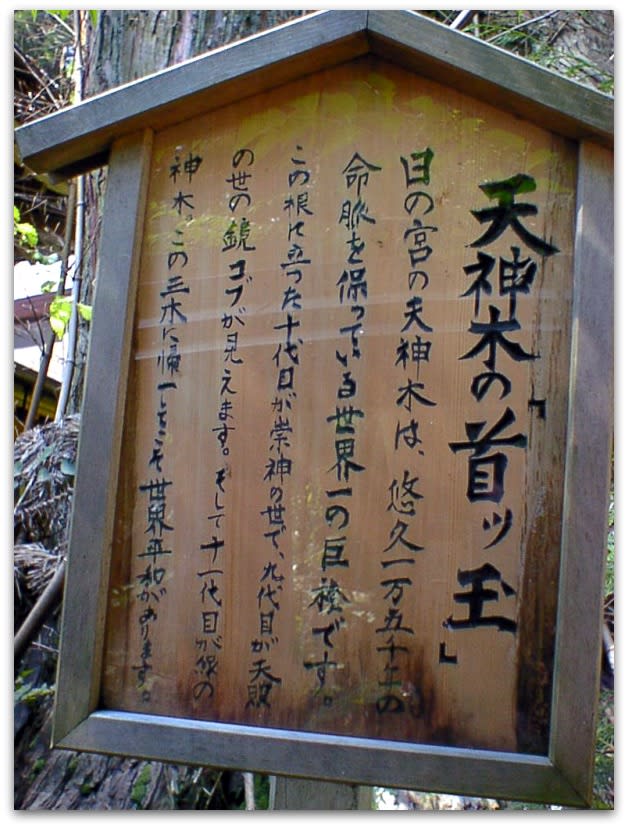 天神木の「首ッ玉」
日の宮の天神木は、悠久一万五千年の
命脈を保っている世界一の巨桧です。
この根に立った十代目が崇神の世で、九代目が天敗
の世の鏡コブが見えます。そして十一代目が緑の
神木。この三木に帰一してこそ世界平和があります。